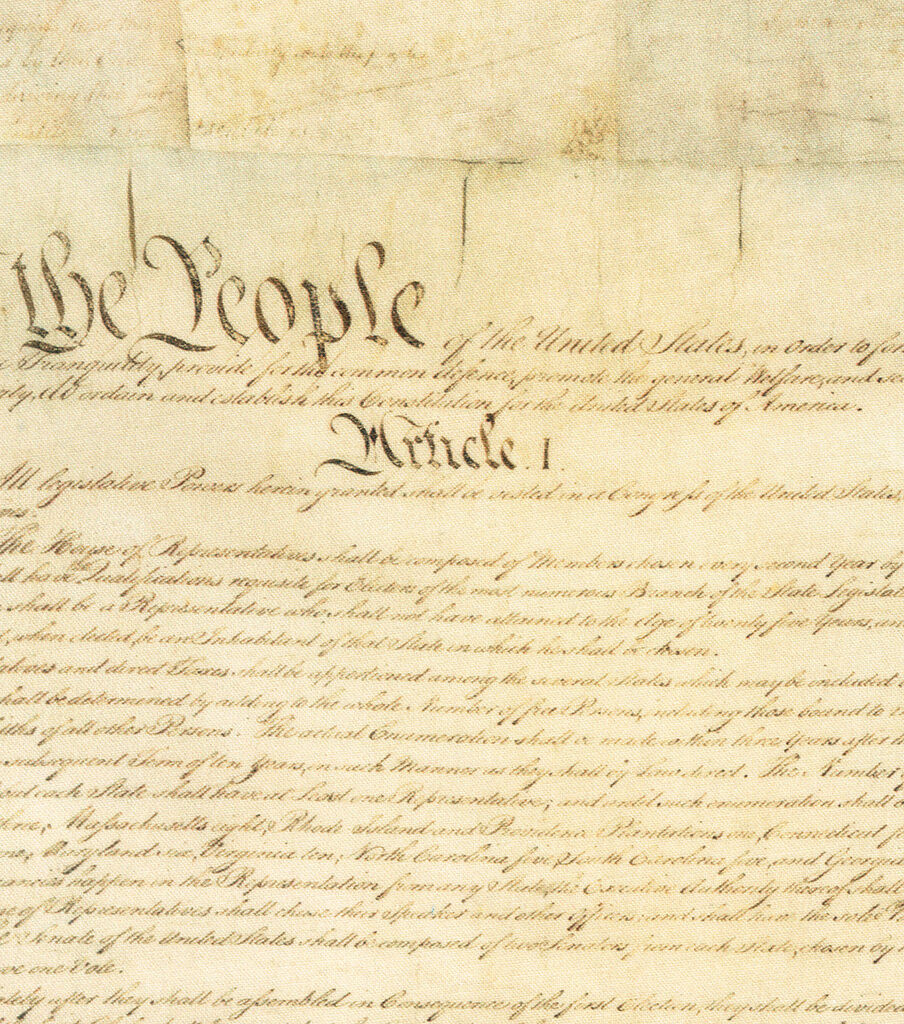 the People of the United States, in Order to for
Tranquility, provide for the common defence, promote the general Welfare, and se
do ordain and establish this Constitution for the United States of America.
Article. I.
All legislative Powers herein granted shall be vested in a Congress of the United States,
The House of Representatives shall be composed of Members chosen every second Year by
ll have Qualifications requisite for Electors of the most numerous Branch of the State Legislat
shall be a Representative who shall not have attained to the Age of twenty five Years, an
when elected, be an Inhabitant of that State in which he shall be chosen.
atives and direct Taxes shall be apportioned among the several States which may be included
shall be determined by adding to the whole Number of free Persons, including those bound to
fths of all other Persons. The actual Enumeration shall be made within three Years after
subsequent Term of ten Years, in such Manner as they shall by Law direct. The Number
each State shall have at Least one Representative; and until such enumeration shall
Massachusetts eight, Rhode Island and Providence Plantations one, Connecticut
Maryland six, Virginia ten, North Carolina five, South Carolina five, and Georgia
ancies happen in the Representation from any State, the Executive Authority thereof shall
of Representatives shall chuse their Speaker and other Officers; and shall have the sole
Senate of the United States shall be composed of two Senators from each State, chosen by
one Vote.
ately after they shall be assembled in Consequence of the first Election, they shall be divided